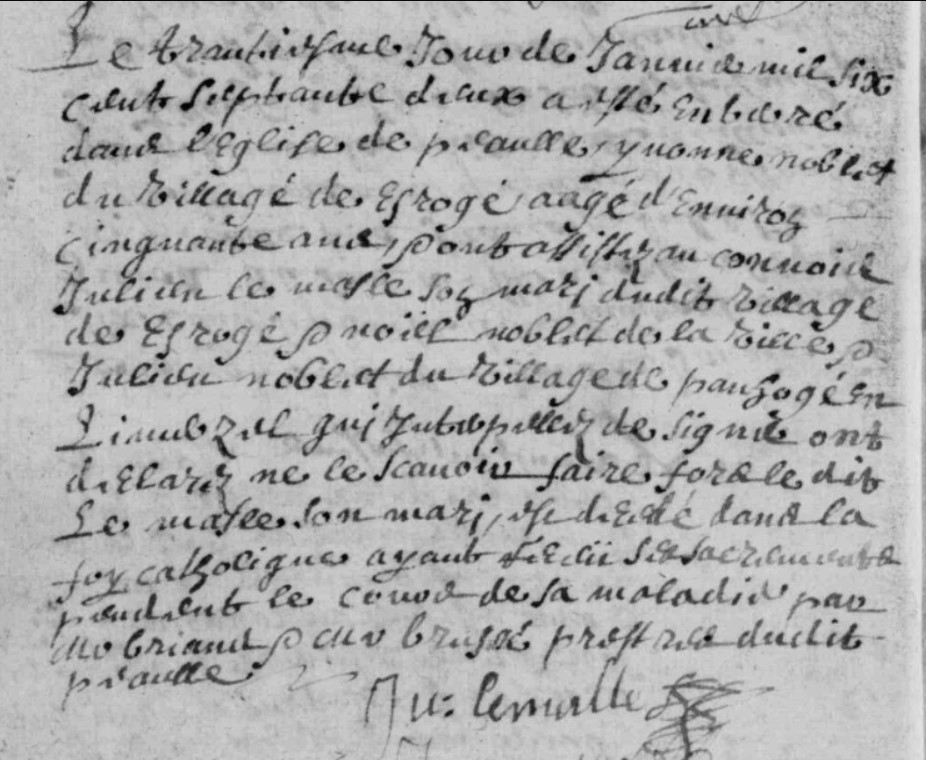 Le trantiesme Jour de Janvie mil six
cent septante deux a esté enteré
dans l'Eglise de peaulle yvonne noblet
du village de Esrogé aagé d'Enviroz
cinquante ans, & ont assistez au convoie
Julien le masle son mari dudit village
de Esrogé & noiel noblet de la ville &
Julien noblet du village de panhogé en
Limerzel qui Interpellez de signé ont
declarez ne le scavoir faire fors le dit
Le masle son mari, est decedé dans la
foy catholique ayant recü ses sacrements
pendent le cours de sa maladie par
briand & brusse prestres dudit
peaulle
Ju: lemalle